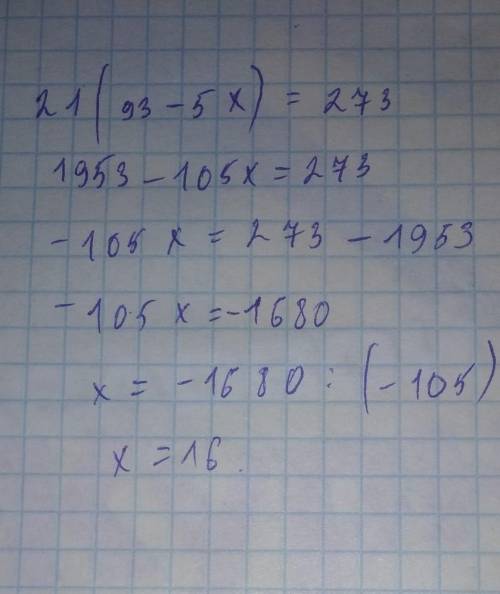 21(93-5x) = 273
1953-105x=273
-105x = 273-1953
-105x=-1680
x = -1680:(-105)
x = 16.